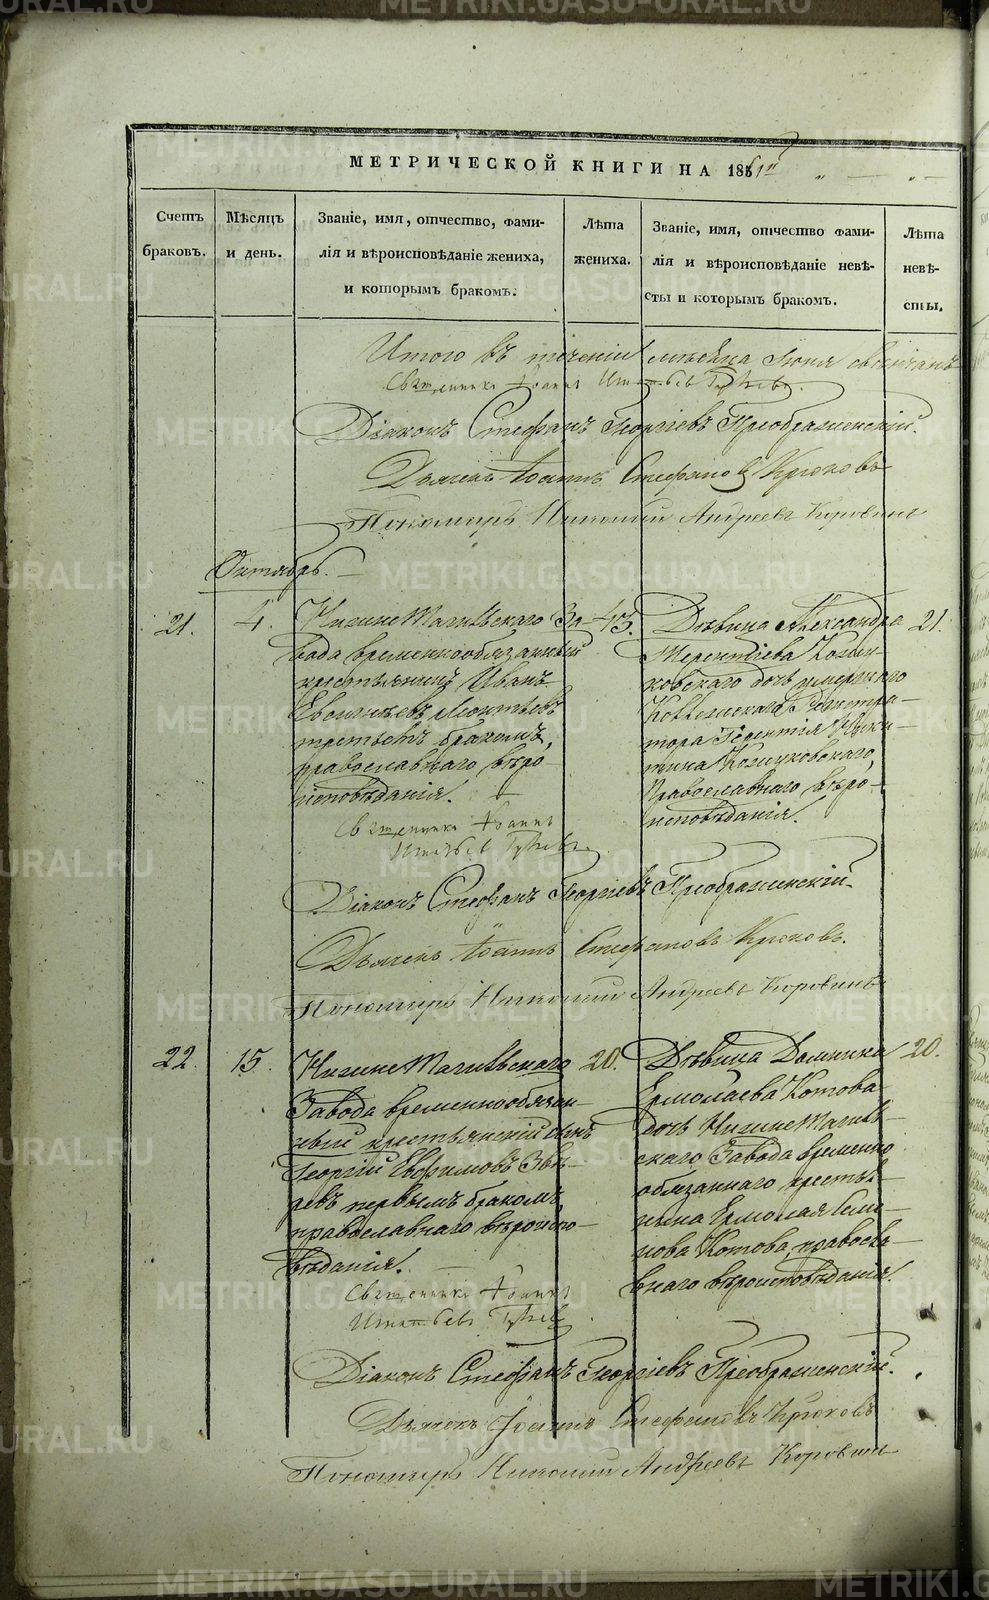 МЕТРИЧЕСКОЙ КНИГИ НА 1861й
Счетъ браковъ.
Мѣсяцъ и день.
Званіе, имя, отчество, фами-
лія и вѣроисповѣданіе жениха,
и которымъ бракомъ.
Лѣта
жениха.
Званіе, имя, отчество фами-
лія и вѣроисповѣданіе невѣ-
сты и которымъ бракомъ.
Лѣта
невѣ-
сты.
Итого въ теченіи мѣсяца
Священникъ Іоаннъ
Діаконъ Стефанъ Георгіевъ Преображенскій.
Дьячекъ Іоаннъ Стефановъ Крюковъ
Пономарь Николай Андреевъ Коровинъ
Октябрь.
21.
4.
Нижне Тагильскаго За-
вода временнообязанный
крестьянинъ Иванъ
Леонтьевъ
третьимъ бракомъ,
православнаго вѣро-
исповѣданія.
43.
Дѣвица Александра
Терентіева
ковскаго дочь умершаго
Коллежскаго Регистра-
тора Терентія Ники-
тина
Православнаго вѣро-
исповѣданія.
21.
Священникъ Іоаннъ
Діаконъ Стефанъ Георгіевъ Преображенскій.
Дьячекъ Іоаннъ Стефановъ Крюковъ.
Пономарь Николай Андреевъ Коровинъ
22.
15.
Нижне Тагильскаго
Завода временнообязан-
ный крестьянскій сынъ
Георгій Евфимовъ Звѣ-
ревъ первымъ бракомъ,
православнаго вѣроиспо-
вѣданія.
20.
Дѣвица Домника
Ермолаева Котова
дочь Нижне Тагиль-
скаго Завода временно
обязаннаго крестья-
нина Ермолая Семе-
нова Котова, правосла-
внаго вѣроисповѣданія.
20.
Священникъ Іоаннъ
Діаконъ Стефанъ Георгіевъ Преображенскій.
Дьячекъ Іоаннъ Стефановъ Крюковъ
Пономарь Николай Андреевъ Коровинъ
METRIKI.GASO-URAL.RU